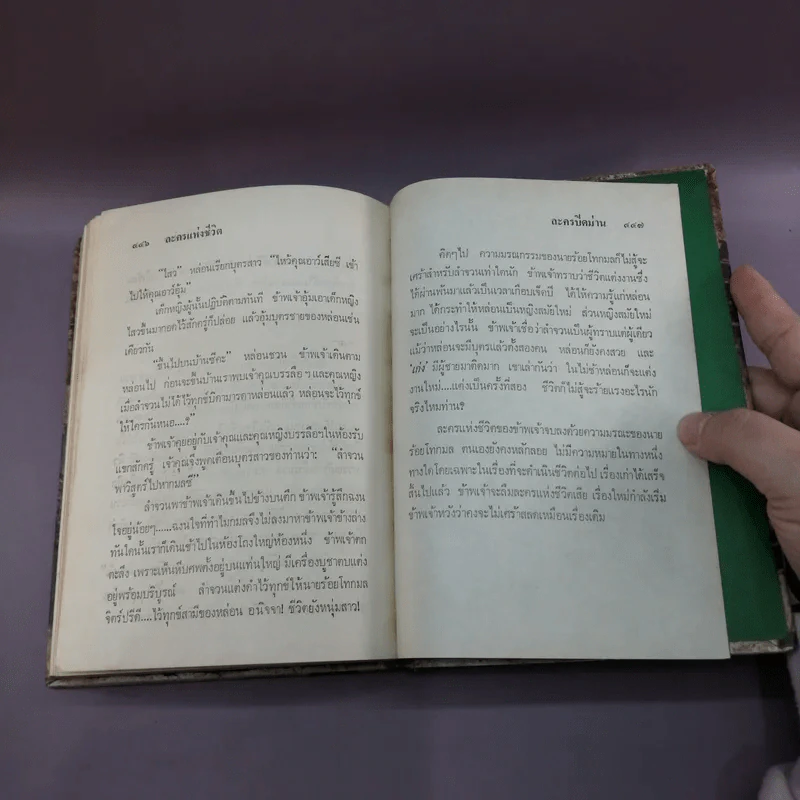 ๔๔๖ ละครแห่งชีวิต
"ไสว" หล่อนเรียกบุตรสาว "ไหว้คุณอาว์เสียซี เข้า
ไปให้คุณอาว์อุ้ม"
เด็กหญิงผู้นั้นปฏิบัติตามทันที ข้าพเจ้าอุ้มเอาเด็กหญิง
ไสวขึ้นมากอดไว้สักครู่ก็ปล่อย แล้วอุ้มบุตรชายของหล่อนเช่น
เดียวกัน
"ขึ้นไปบนบ้านซีคะ" หล่อนชวน ข้าพเจ้าเดินตาม
หล่อนไป ก่อนจะขึ้นบ้านเราพบเจ้าคุณบรรลือฯ และคุณหญิง
เมื่อลำจวนไม่ได้ไว้ทุกข์บิดามารดาหล่อนแล้ว หล่อนจะไว้ทุกข์
ให้ใครกันหนอ....?
ข้าพเจ้าคุยอยู่กับเจ้าคุณและคุณหญิงบรรลือฯในห้องรับ
แขกสักครู่ เจ้าคุณจึงพูดเตือนบุตรสาวของท่านว่า: "ลำจวน
พาวิสูตร์ไปหากมลซี"
ลำจวนพาข้าพเจ้าเดินขึ้นไปข้างบนตึก ข้าพเจ้ารู้สึกฉงน
ใจอยู่น้อยๆ......ฉงนใจที่ทำไมกมลจึงไม่ลงมาหาข้าพเจ้าข้างล่าง
ทันใดนั้นเราก็เดินเข้าไปในห้องโถงใหญ่ห้องหนึ่ง ข้าพเจ้าตก
ตะลึง เพราะเห็นหีบศพตั้งอยู่บนแท่นใหญ่ มีเครื่องบูชาตบแต่ง
อยู่พร้อมบริบูรณ์ ลำจวนแต่งดำไว้ทุกข์ให้นายร้อยโทกมล
จิตร์ปรีดี....ไว้ทุกข์สามีของหล่อน อนิจจา! ชีวิตยังหนุ่มสาว!
ละครปิดม่าน ๔๔๗
คิดๆไป ความมรณกรรมของนายร้อยโทกมลก็ไม่สู้จะ
เศร้าสำหรับลำจวนเท่าใดนัก ข้าพเจ้าทราบว่าชีวิตแต่งงานซึ่ง
ได้ผ่านพ้นมาแล้วเป็นเวลาเกือบเจ็ดปี ได้ให้ความรู้แก่หล่อน
มาก ได้กระทำให้หล่อนเป็นหญิงสมัยใหม่ ส่วนหญิงสมัยใหม่
จะเป็นอย่างไรนั้น ข้าพเจ้าเชื่อว่าลำจวนเป็นผู้ทราบแต่ผู้เดียว
แม้ว่าหล่อนจะมีบุตรแล้วตั้งสองคน หล่อนก็ยังคงสวย และ
'เก๋ง' มีผู้ชายมาติดมาก เขาเล่ากันว่า ในไม่ช้าหล่อนก็จะแต่ง
งานใหม่....แต่งเป็นครั้งที่สอง ชีวิตก็ไม่สู้จะร้ายแรงอะไรนัก
จริงไหมท่าน?
ละครแห่งชีวิตของข้าพเจ้าจบลงด้วยความมรณะของนาย
ร้อยโทกมล ตนเองยังคงหลักลอย ไม่มีความหมายในทางหนึ่ง
ทางใดโดยเฉพาะในเรื่องที่จะดำเนินชีวิตต่อไป เรื่องเก่าได้เสร็จ
สิ้นไปแล้ว ข้าพเจ้าจะลืมละครแห่งชีวิตเสีย เรื่องใหม่กำลังเริ่ม
ข้าพเจ้าหวังว่าคงจะไม่เศร้าสลดเหมือนเรื่องเดิม